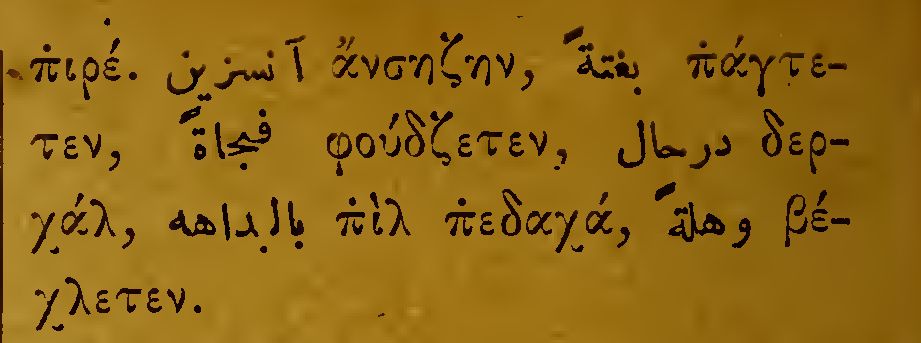 π̇ιρέ. آنسزين ἄνσηζην, بغتةً π̇άγτε-
τεν, فجاةً φούδζετεν, درحال δερ-
χάλ, بالبداهه π̇ὶλ π̇εδαχά, وهلةً βέ-
χλετεν.